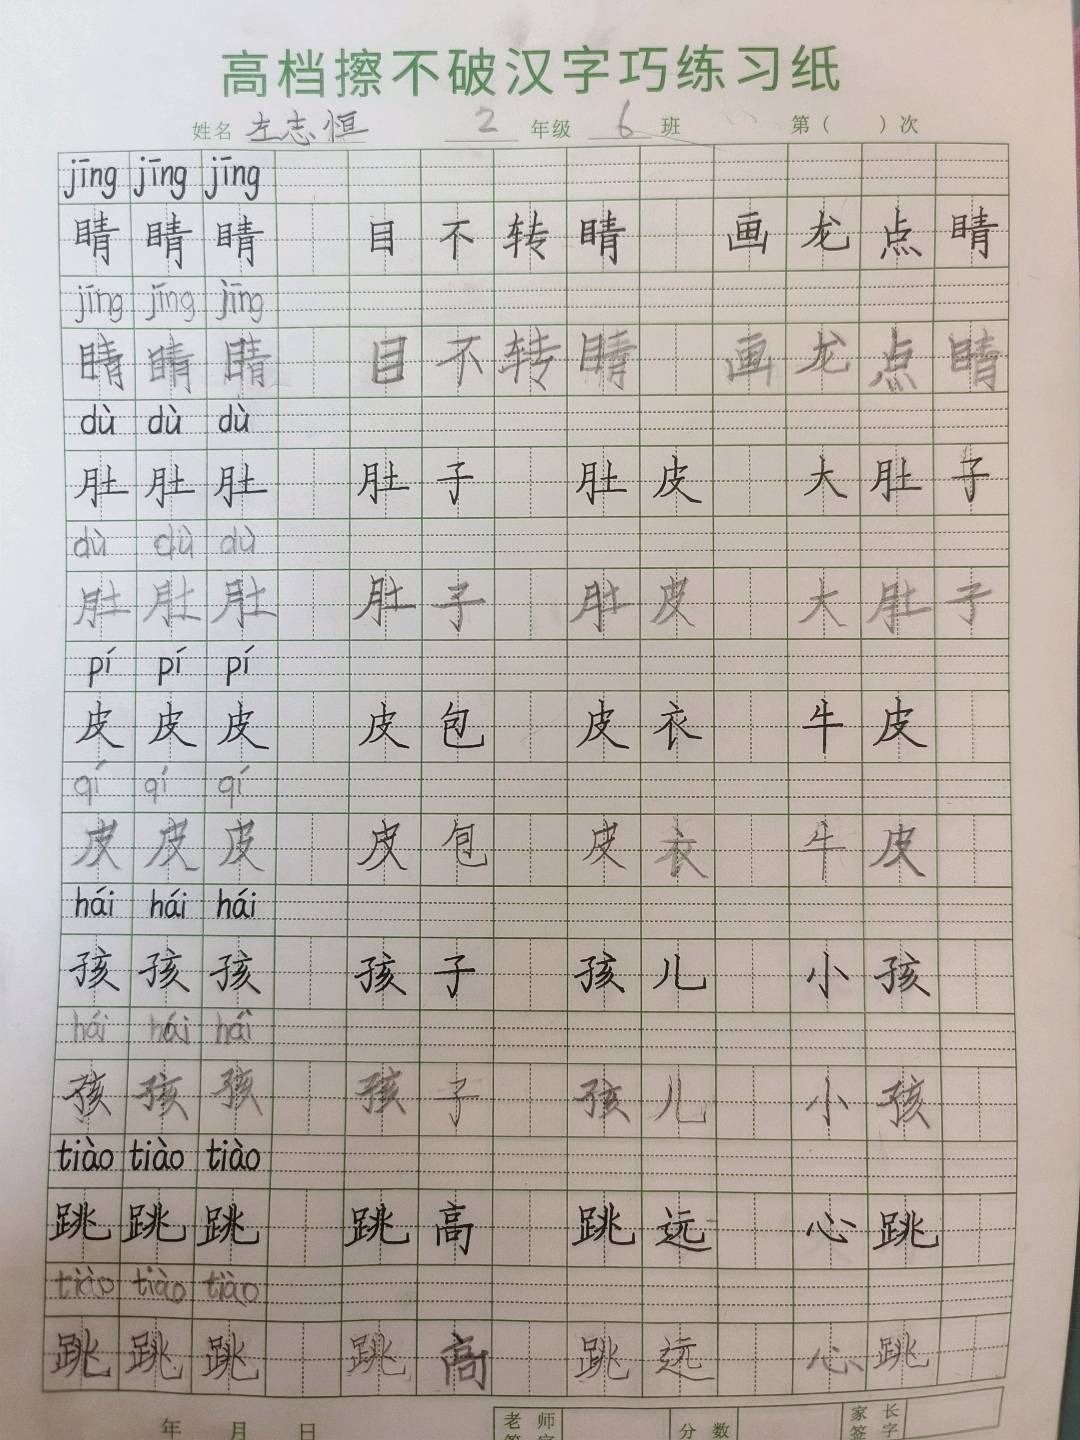 高档擦不破汉字巧练习纸
姓名 左志恒 2 年级 6 班 第（ ）次
jīng jīng jīng
睛 睛 睛 目 不 转 睛 画 龙 点 睛
jīng jīng jīng
睛 睛 睛 目 不 转 睛 画 龙 点 睛
dù dù dù
肚 肚 肚 肚 子 肚 皮 大 肚 子
dù dù dù
肚 肚 肚 肚 子 肚 皮 大 肚 子
pí pí pí
皮 皮 皮 皮 包 皮 衣 牛 皮
qí qí qí
皮 皮 皮 皮 包 皮 衣 牛 皮
hái hái hái
孩 孩 孩 孩 子 孩 儿 小 孩
hái hái hái
孩 孩 孩 孩 子 孩 儿 小 孩
tiào tiào tiào
跳 跳 跳 跳 高 跳 远 心 跳
tiào tiào tiào
跳 跳 跳 跳 高 跳 远 心 跳
年 月 日 老师 分数 家长签字